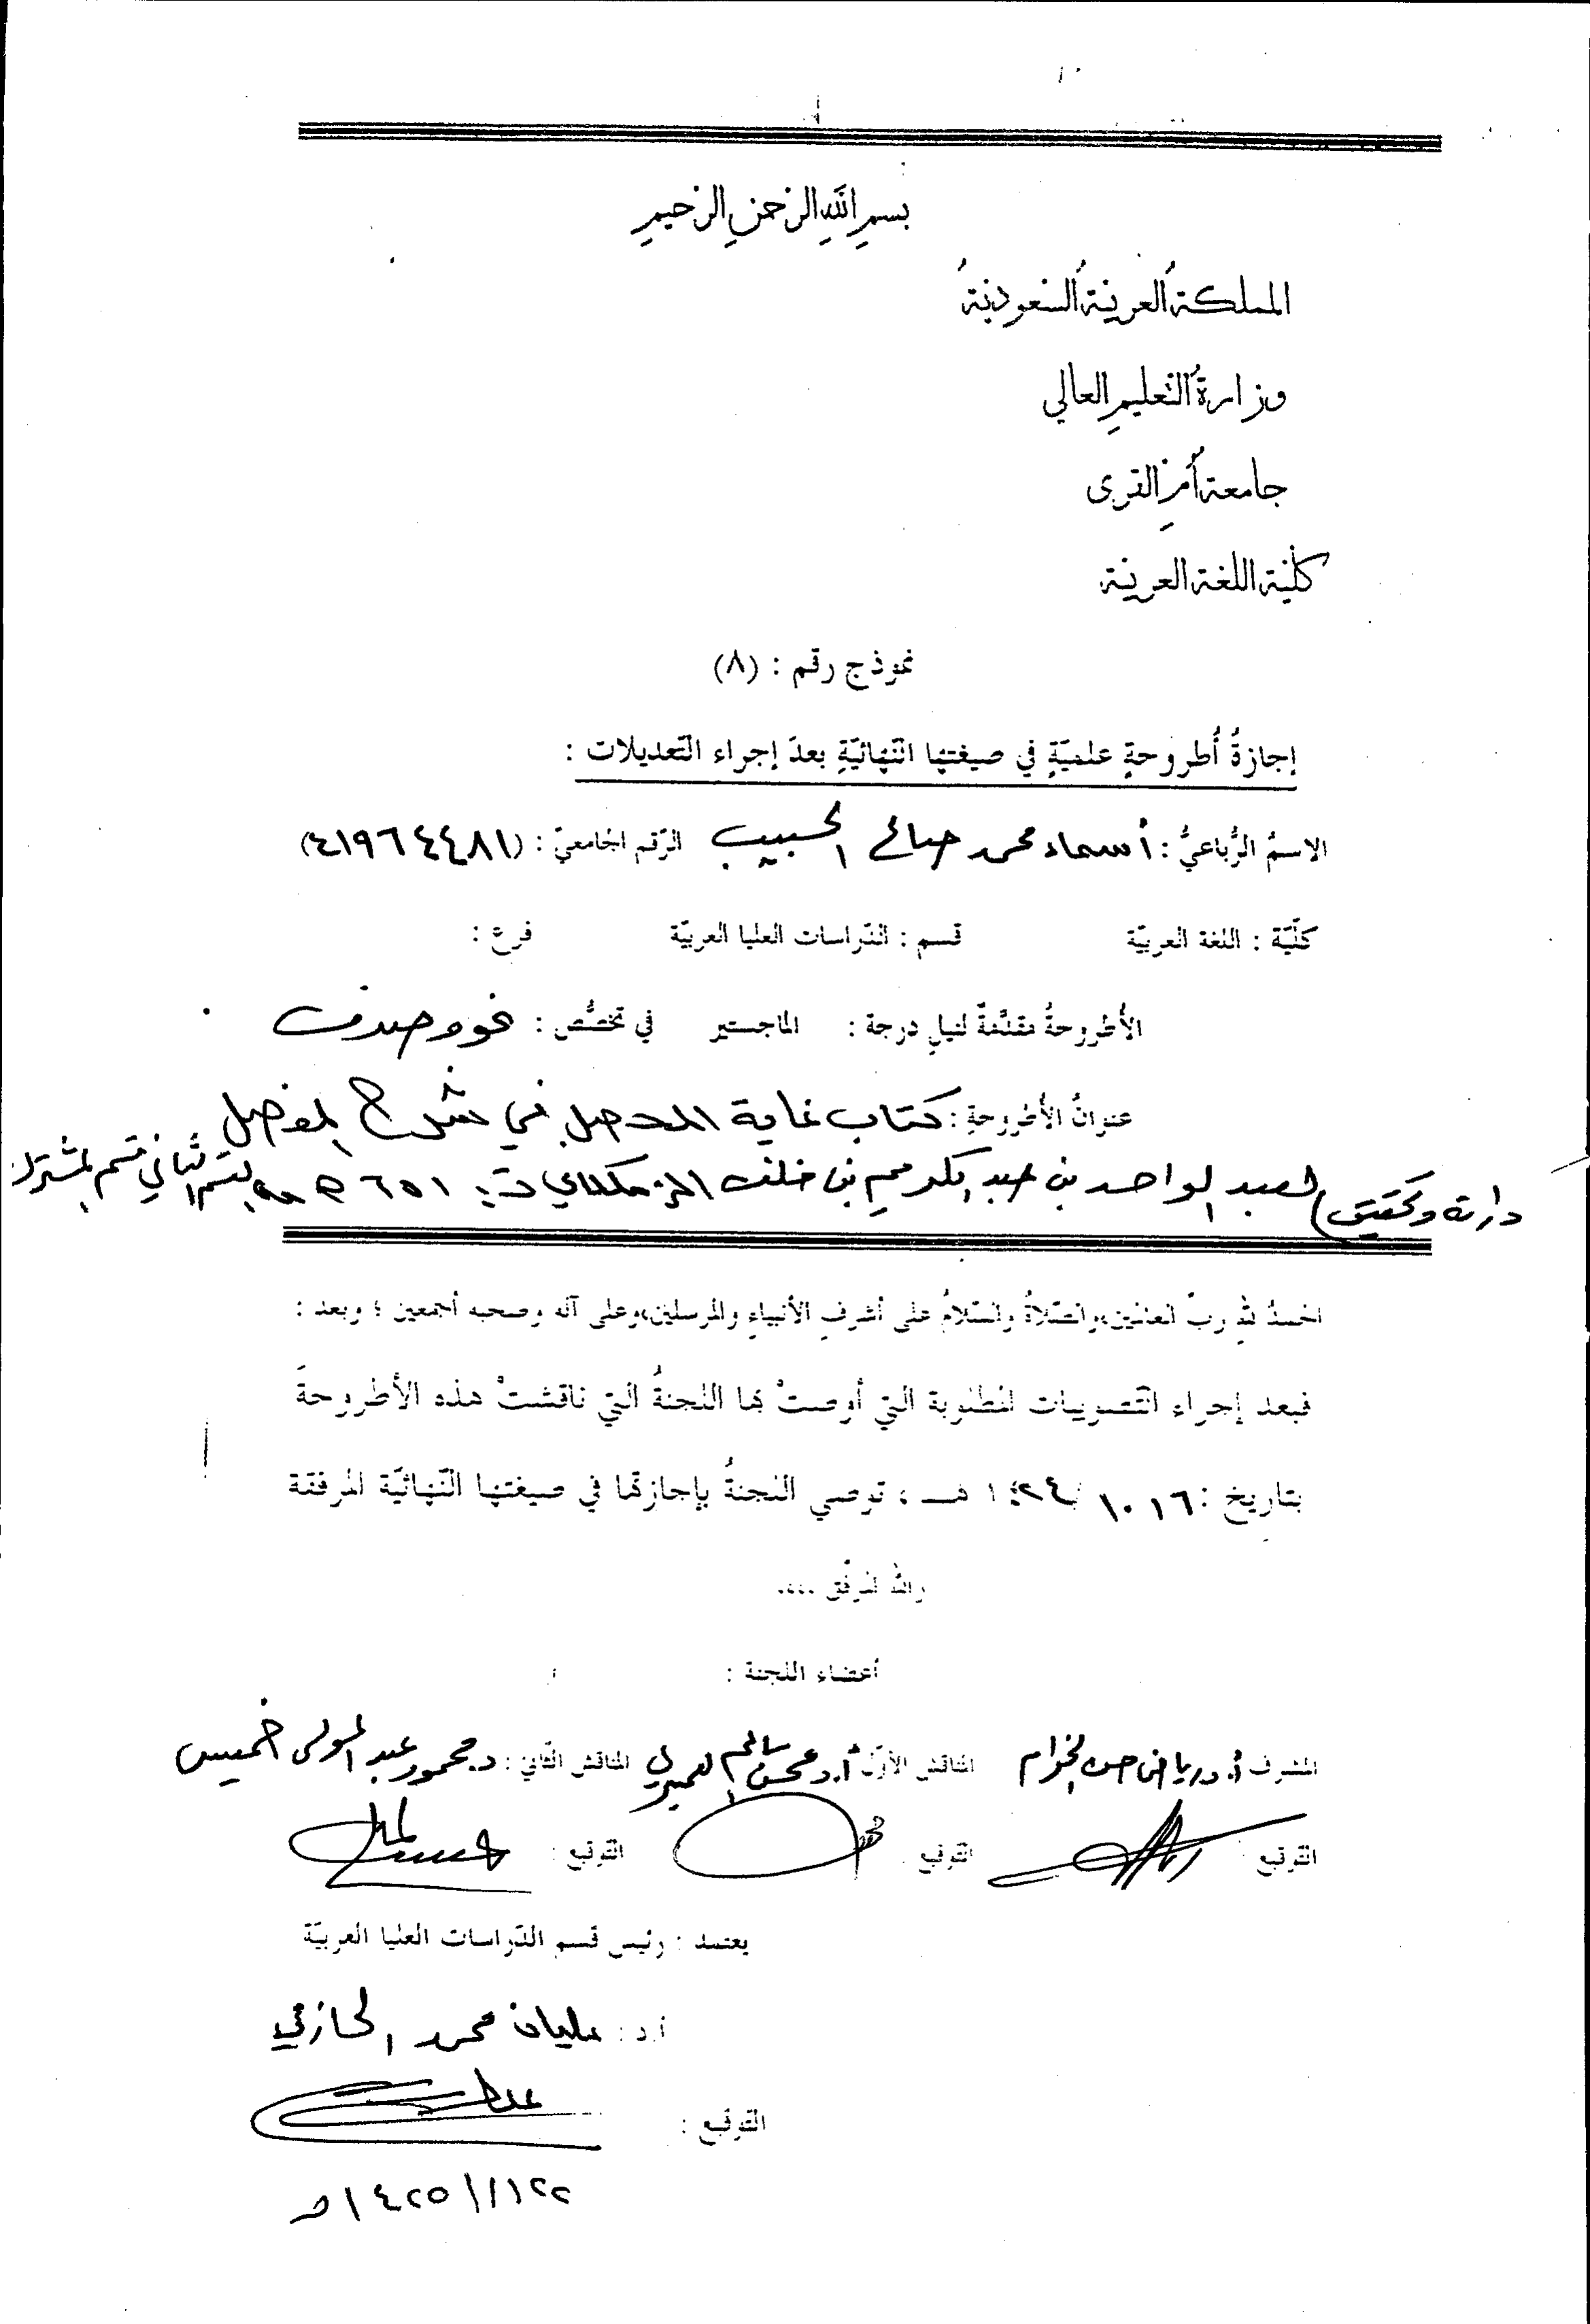 بسم الله الرحمن الرحيم
المملكة العربية السعودية
وزارة التعليم العالي
جامعة أم القرى
كلية اللغة العربية
نموذج رقم : (٨)
إجازةُ أُطروحةٍ علميّةٍ في صيغتها النّهائيّةِ بعدَ إجراء التّعديلات :
الاسمُ الرُّباعيُّ : أسماء محمد صالح الحبيب الرّقم الجامعيّ : (٤١٩٦٤٤٨١)
كلّيّة : اللغة العربيّة قسم : الدّراسات العليا العربيّة فرع :
الأُطروحةُ مقدَّمةٌ لنيلِ درجة : الماجستير في تخصُّص : نحو وصرف
عنوانُ الأُطروحةِ : كتاب غاية المحصل في شرح المفصل
لعبد الواحد بن عبد الكريم بن خلف الزملكاني ت: ٦٥١ هـ القسم الثاني قسم المشترك دراسة وتحقيق
الحمدُ للهِ ربِّ العالمين،والصّلاةُ والسّلامُ على أشرفِ الأنبياءِ والمرسلين،وعلى آله وصحبه أجمعين ؛ وبعد :
فبعد إجراء التّصويبات المطلوبة التي أوصتْ بها اللجنةُ التي ناقشتْ هذه الأطروحةَ
بتاريخ : ١٦ /١٠ /١٤٢٤ هـ ، توصي اللجنةُ بإجازتها في صيغتها النّهائيّة المرفقة
والله الموفّق ....
أعضاء اللجنة :
المشرف أ.د رياض حسن الخوام المناقش الأوّل أ.د محسن سالم العميري المناقش الثّاني : د. محمود عبد المولى خميس
التوقيع التوقيع التوقيع :
يعتمد : رئيس قسم الدّراسات العليا العربيّة
أ.د : عليان محمد الحازمي
التوقيع :
٢٢/١/١٤٢٥هـ